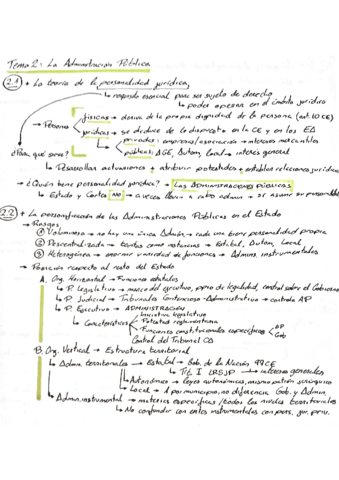 Tema 2: La Administración Pública
2.1 + La teoría de la personalidad jurídica
↳ requisito esencial para ser sujeto de derecho
↳ poder operar en el ámbito jurídico
→ Personas físicas → deriva de la propia dignidad de la persona (art. 10 CE)
jurídicas → se deduce de lo dispuesto en la CE y en los
privadas: empresas/asociación → intereses mercantiles
¿Para qué sirve? públicas: AGE, Autom, Local → interés general
↳ Desarrollar actuaciones + atribuir potestades + establec relaciones jurídicas
→ ¿Quién tiene personalidad jurídica? → Las Administraciones Públicas
↳ Estado y Cortes NO → a veces lleva a cabo admin → se asume su personalidad
2.2 + La personificación de las Administraciones Públicas en el Estado
→ Rasgos
① Voluminosa → no hay una única Admón → cada una tiene personalidad propia
② Descentralizada → tantas como instancias → Estatal, Autom, Local
③ Heterogénea → enorme variedad de funciones → Admins. instrumentales
→ Posición respecto al resto del Estado
A. Org. Horizontal → Funciones estatales
↳ P. Legislativo → marco del ejecutivo, ppio de legalidad, control sobre el Gobierno
↳ P. Judicial → Tribunales Contencioso-Administrativo → controla AP
↳ P. Ejecutivo → ADMINISTRACIÓN
Iniciativa legislativa
Características Potestad reglamentaria
Funciones constitucionales específicas AP
Gob
Control del Tribunal
B. Org. Vertical → Estructura territorial
↳ Admin. territoriales → Estatal → Gob. de la Nación 97 CE
↳ Tít. I LRSJP → intereses generales
↳ Autonómica → leyes autonómicas, mismo patrón jerárquico
↳ Local → A por municipio, no diferencia Gob. y Admin.
↳ Admin. instrumental → materias específicas / todos los niveles territoriales
↳ No confundir con entes instrumentales con pers. jur. priv.